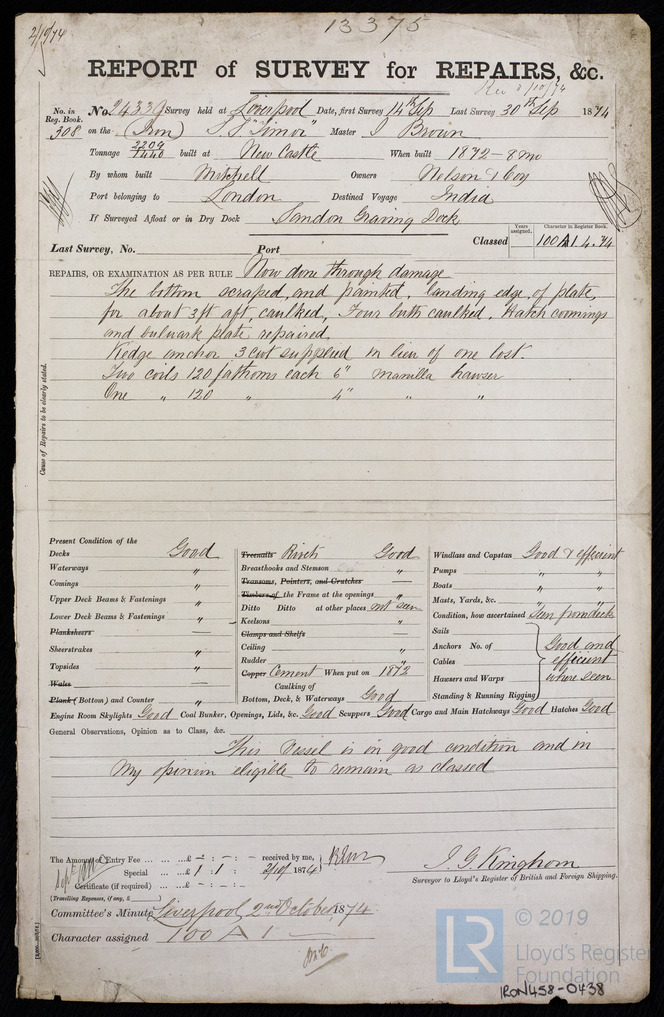 2/10/74
13375
REPORT of SURVEY for REPAIRS, &c.
Rec 3/10/74
No. in Reg. Book. No. 24339 Survey held at Liverpool Date, first Survey 14th Sep Last Survey 30th Sep 1874
308 on the (Iron) S.S "Timor" Master J Brown
Tonnage 2209 / 1440 built at New Castle When built 1872 - 8 mo
By whom built Mitchell Owners Nelson & Coy
Port belonging to London Destined Voyage India
If Surveyed Afloat or in Dry Dock Sandon Graving Dock
Years assigned. Character in Register Book.
Last Survey, No. Port Classed 100A1 4.74
REPAIRS, OR EXAMINATION AS PER RULE Now done through damage
The bottom scraped, and painted, landing edge, of plate,
for about 3 ft aft, caulked, Four butts caulked, Hatch comings
and bulwark plate repaired
Kedge anchor 3 cwt supplied in lieu of one lost.
Two coils 120 fathoms each 6" manilla hawser
One " 120 " 4" " "
Cause of Repairs to be clearly stated.
Present Condition of the
Decks Good
Waterways "
Comings "
Upper Deck Beams & Fastenings "
Lower Deck Beams & Fastenings "
Planksheers —
Sheerstrakes "
Topsides "
Wales —
Plank (Bottom) and Counter "
Treenails Rivets Good
Breasthooks and Stemson "
Transoms, Pointers, and Crutches —
Timbers of the Frame at the openings "
Ditto Ditto at other places not seen
Keelsons "
Clamps and Shelfs —
Ceiling "
Rudder "
Copper Cement When put on 1872
Caulking of
Bottom, Deck, & Waterways Good
Windlass and Capstan Good & efficient
Pumps " "
Boats " "
Masts, Yards, &c. " "
Condition, how ascertained Seen from deck
Sails
Anchors No. of Good and
Cables efficient
Hawsers and Warps where seen
Standing & Running Rigging
Engine Room Skylights Good Coal Bunker, Openings, Lids, &c. Good Scuppers Good Cargo and Main Hatchways Good Hatches Good
General Observations, Opinion as to Class, &c.
This Vessel is in good condition and in
my opinion eligible to remain as classed
The Amount of Entry Fee ... ... ...£ - : - : - received by me,
Special ... ...£ 1 : 1 : 2/10/ 1874
Certificate (if required) ... ...£ - : - : -
(Travelling Expenses, if any, £ )
J. G. Kinghorn
Surveyor to Lloyd's Register of British and Foreign Shipping.
Committee's Minute Liverpool 2nd October 1874
Character assigned 100 A 1
© 2019
LR
Lloyd's Register
Foundation
IRON458-0438